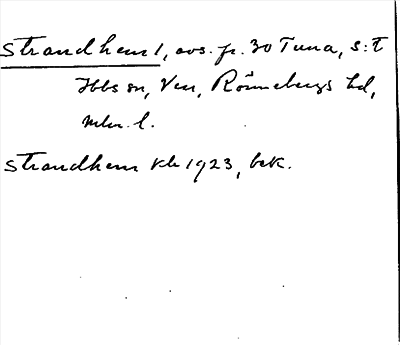 Strandhem 1, avs. fr. 30 Tuna, S:t
Ibbs sn, Ven, Rönnebergs hd,
Mlm. l.
Strandhem Kb 1923, bek.